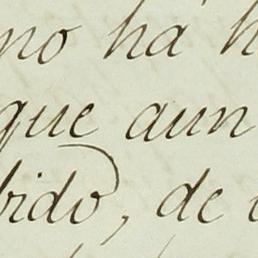 no há h
que aun
bido, de